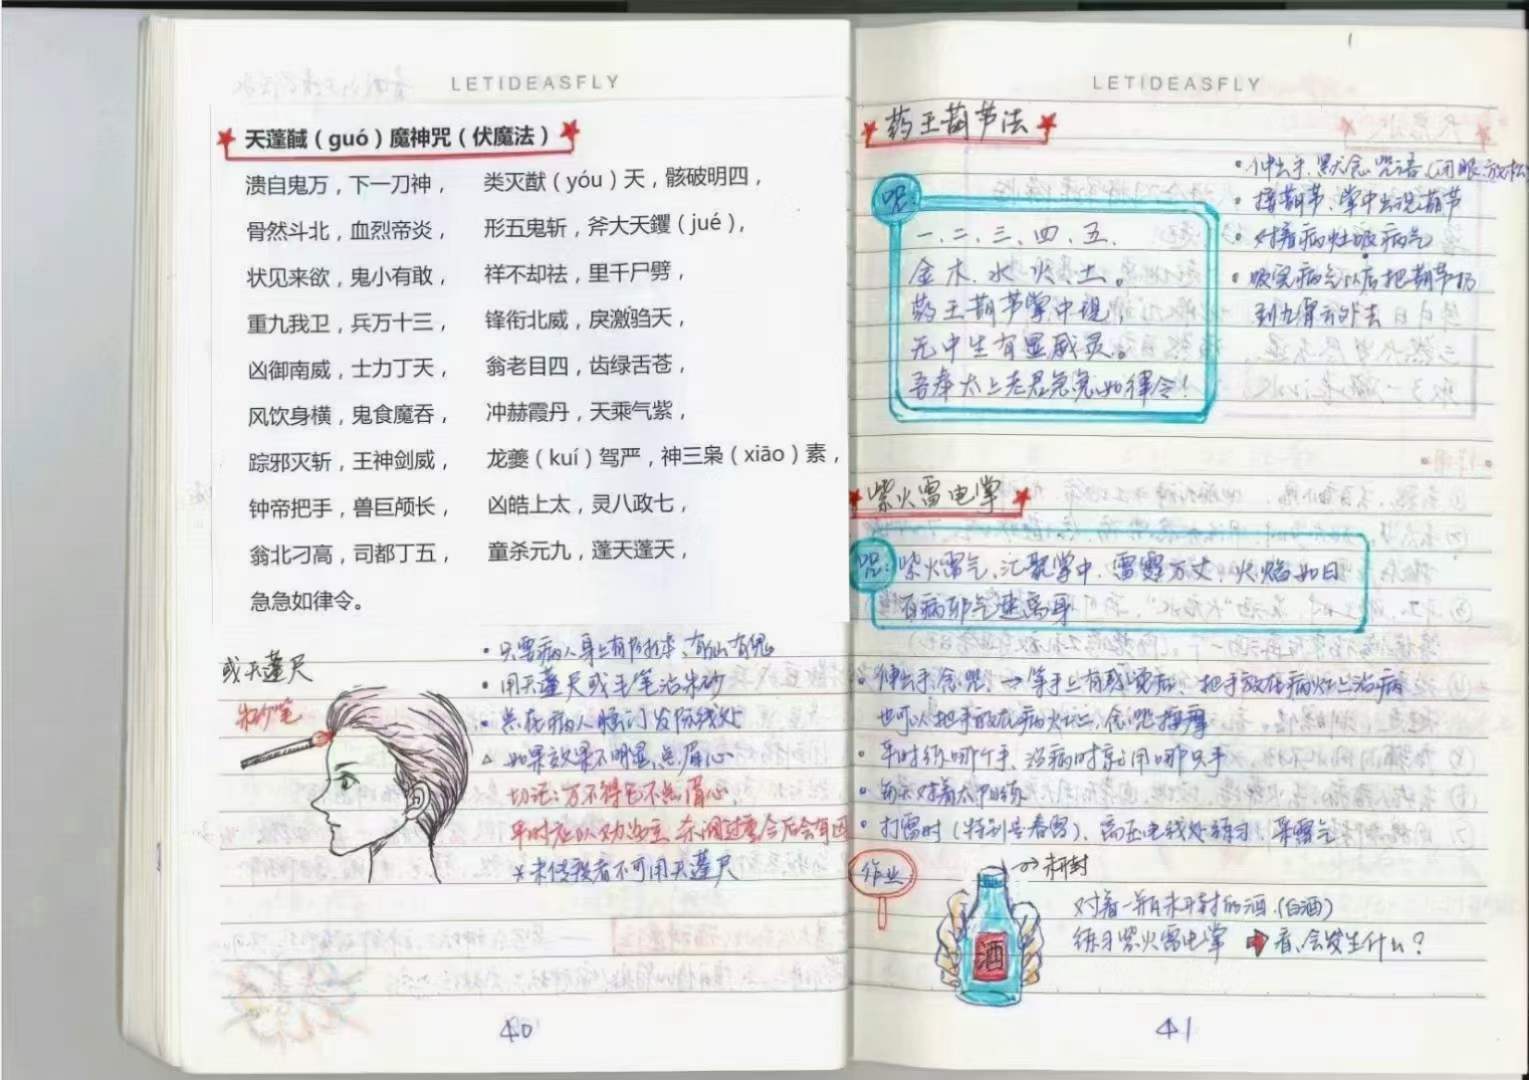 LETIDEASFLY
天蓬馘（guó）魔神咒（伏魔法）
溃自鬼万，下一刀神， 类灭猷（yóu）天，骸破明四，
骨然斗北，血烈帝炎， 形五鬼斩，斧大天钁（jué），
状见来欲，鬼小有敢， 祥不却祛，里千尸劈，
重九我卫，兵万十三， 锋衔北威，戾激驺天，
凶御南威，士力丁天， 翁老目四，齿绿舌苍，
风饮身横，鬼食魔吞， 冲赫霞丹，天乘气紫，
踪邪灭斩，王神剑威， 龙夔（kuí）驾严，神三枭（xiāo）素，
钟帝把手，兽巨颅长， 凶皓上太，灵八政七，
翁北刁高，司都丁五， 童杀元九，蓬天蓬天，
急急如律令。
或天蓬尺
朱砂笔
• 只要病人身上有附体、有仙有鬼
• 用天蓬尺或毛笔沾朱砂
• 点在病人脑门发际线处
△ 如果效果不明显，点眉心
切记：万不得已不点眉心，
平时应以劝为主，杀
※ 未传授者不可用天蓬尺
40
1
LETIDEASFLY
药王葫芦法
咒：
一、二、三、四、五、
金木、水火、土。
药王葫芦掌中现，
无中生有显威灵。
吾奉太上老君急急如律令！
• 伸出手，默念咒语（闭眼、放松
• 接葫芦，掌中出现葫芦
• 对着病灶吸病气
• 吸完病气以后把葫芦扔
到九霄云外去
紫火雷电掌
咒：紫火雷气，汇聚掌中，雷霆万丈，火焰如日
百病邪气速离身
• 伸出手，念咒，→ 等手上有感觉后，把手放在病灶上治病
也可以把手放在病灶上，念咒按摩
• 平时练哪个手，治病时就用哪只手
• 每天对着太阳练
• 打雷时（特别是春雷），高压电线处练习，采雷气
作业
酒
→未开封
对着一瓶未开封的酒（白酒）
练习紫火雷电掌 ➡ 看，会发生什么？
41